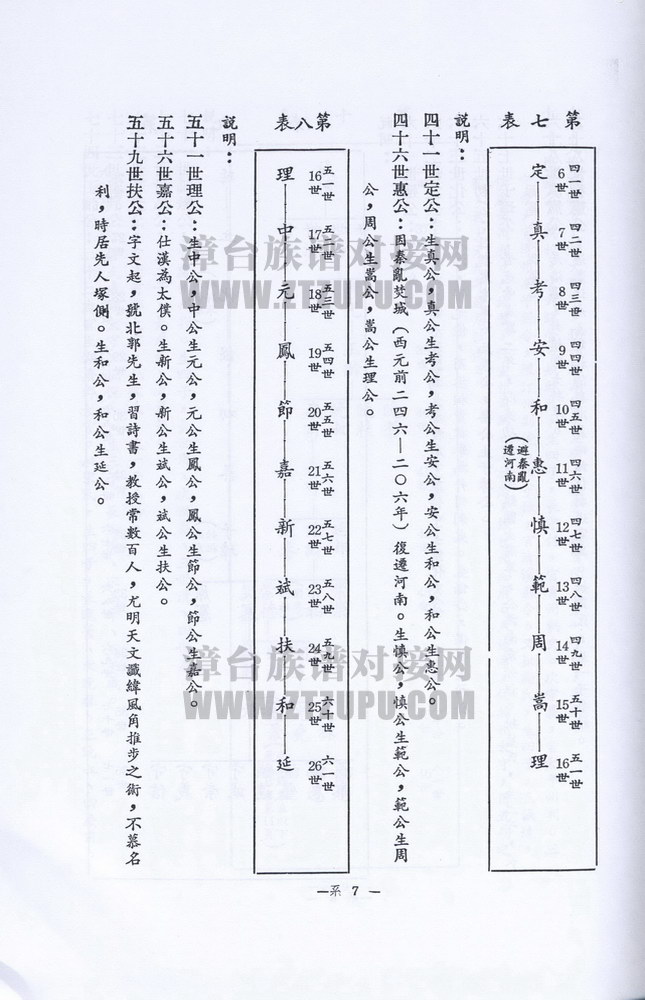 第七表
四一世 四二世 四三世 四四世 四五世 四六世 四七世 四八世 四九世 五十世 五一世
6世 7世 8世 9世 10世 11世 12世 13世 14世 15世 16世
定—真—考—安—和—惠—慎—範—周—嵩—理
(避秦亂遷河南)
說明：
四十一世定公：生真公，真公生考公，考公生安公，安公生和公，和公生惠公。
四十六世惠公：因秦亂焚城(西元前二四六—二〇六年)復遷河南。生慎公，慎公生範公，範公生周
公，周公生嵩公，嵩公生理公。
第八表
五一世 五二世 五三世 五四世 五五世 五六世 五七世 五八世 五九世 六十世 六一世
16世 17世 18世 19世 20世 21世 22世 23世 24世 25世 26世
理—中—元—鳳—節—嘉—新—斌—扶—和—延
說明：
五十一世理公：生中公，中公生元公，元公生鳳公，鳳公生節公，節公生嘉公。
五十六世嘉公：仕漢為太僕。生新公，新公生斌公，斌公生扶公。
五十九世扶公：字文起，號北郭先生，習詩書，教授常數百人，尤明天文讖緯風角推步之術，不慕名
利，時居先人塚側。生和公，和公生延公。
—系 7 —
漳台族谱对接网
WWW.ZTZUPU.COM
漳台族谱对接网
WWW.ZTZUPU.COM